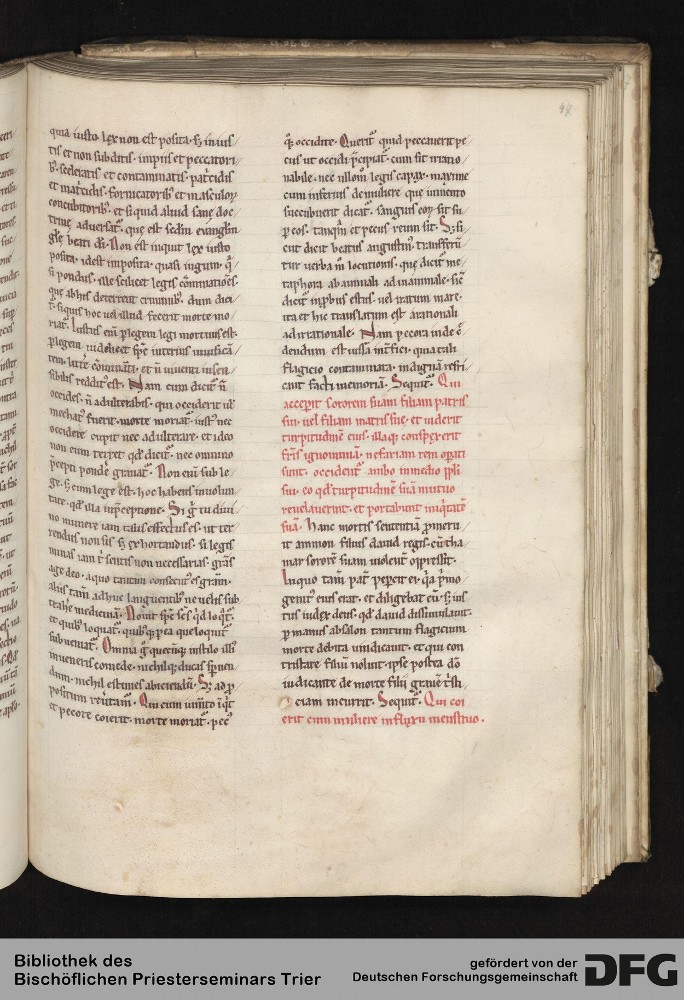 quia iusto lex non est posita· sꝫ inius/
tis et non subditis· impiis et peccatori/
bꝰ· sceleratis et contaminatis· par̄cidis
et mat̄cidis· fornicatoribꝰ et masculoꝝ
concubitoribꝰ· et siquid aliud sanę doc/
trinę aduersat᷑· quę est sc̄dm euangl̄m
gl̄ę beati dī· Non est inquit lex iusto
posita· idest imposita· quasi iugum· ꝙ̄/
si pondus· ille scilicet legis cōminatiōes·
quę ab his deterreat criminibꝰ· dum dici/
t᷑· siquis hoc uel illud fecerit morte mo/
riat᷑· Iustus eni ̄ ꝑ legem legi mortuus est·
ꝑ legem
tem· litterę
sibilis redditꝰ est· Nam cum dicit᷑ n̄
occides· n̄ adulterabis· qui occiderit ul̄
mechatꝰ fuerit· morte moriat᷑· iustꝰ nec
occidere cupit nec adulterare· et ideo
non eum terret qd̄ dicit᷑· nec omnino
p̄cepti pondē grauat᷑· Non eni ̄ sub le/
ge· sꝫ cum lege est· hoc habens in uolun/
tate· qd̄ illa in p̄ceptione· Si g̊ tu diui/
no munere iam talis effectus es· ut ter/
rendus non sis· sꝫ exhortandus· si legis
minas iam t᷑ sentis non necessarias· grās
age deo· a quo tantam consecutꝰ es grām·
aliis tam̄ adhuc languentibꝰ ne uelis sub
trahē medicinā· Nouit sp̄c sc̄s qd̄ loqt᷑·
et quibꝰ loquat᷑·
subueniat᷑· Omnia g̊ quecūq; in stalo illiꝰ
inueneris comede· nichilq; ducas spnen/
dum· nichil estimes abiciendū· Sꝫ ad ꝓ/
positum reūtam᷑· Qui cum iumto iqt
et pecore coierit· morte moriat᷑· pecꝰ
q̊; occidite· Querit᷑ quid peccauerit pe/
cus ut occidi p̄cipiat᷑· cum sit irratio/
nabile· nec ulloᷓm legis capax· maxime
cum inferius de muliere quę iumento
succubuerit dicat᷑· sanguis eoꝝ sit su/
ꝑ eos· tanqm̄ et pecus reum sit· Sꝫ si/
cut dicit beatus augustinꝰ· transferū/
tur uerba in locutionis· quę dicit᷑ me/
taphora ab animali ad inanimale· sic
dicit᷑ inprobus estus· uel iratum mare·
ita et hic translatum est a rationali
ad irrationale· Nam pecora inde c̄/
dendum est iussa int̄fici· quia tali
flagicio contaminata· indignā refri/
cant facti memoriā· Sequit᷑· Qui
acceperit sororem suam filiam patris
sui· uel filiam matris suę· et uiderit
turpitudinē eius· illaq; conspexerit
fr̄is ignominiā· nefariam rem opati
sunt· occident᷑ ambo in medio ppli
sui· eo qd̄ turpitudinē suā mutuo
reuelauerint· et portabunt iniqtatē
suā· Hanc mortis sententiā ꝓmeru/
it ammon filius dauid regis· cū tha/
mar sororē suam uiolent᷑ oppressit·
In quo tam̄ pat᷑ pepcit ei· q̄a p̄mo
genitꝰ eius erat· et diligebat eū· sꝫ ius
tus iudex deus· qd̄ dauid dissimulauit·
ꝑ manus absalon tantum flagicium
morte debita uindicauit· et qui con
tristare filiū noluit· ipse postea dō
iudicante de morte filii grauē t̄sti
ciam incurrit· Sequit᷑· Qui coi
erit cum muliere in fluxu menstruo·
Bibliothek des
Bischöflichen Priesterseminars Trier
gefördert von der
Deutschen Forschungsgemeinschaft
DFG